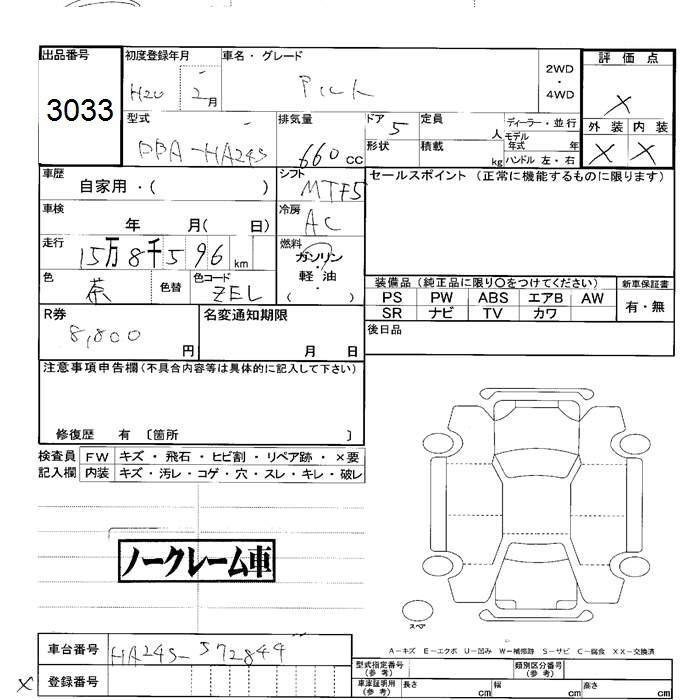 出品番号 初度登録年月 車名・グレード 評価点
3033 H20 2月 Pick 2WD・4WD X
型式 排気量 ドア 定員 ディーラー・並行 外装 内装
660cc 5 人 モデル年式 年 X X
形状 積載 kg ハンドル 左・右
車歴 シフト セールスポイント (正常に機能するものに限ります)
自家用・( ) MTF5
車検 冷房
年 月( 日) AC
走行 燃料
15万8千596km ガソリン
色 色替 色コード 軽油
茶 ZEL ( )
装備品 (純正品に限り○をつけてください) 新車保証書
PS PW ABS エアB AW 有・無
SR ナビ TV カワ
R券 名変通知期限 後日品
8,800円 月 日
注意事項申告欄(不具合内容等は具体的に記入して下さい)
修復歴 有 〔箇所 〕
検査員 FW キズ・飛石・ヒビ割・リペア跡・×要
記入欄 内装 キズ・汚レ・コゲ・穴・スレ・キレ・破レ
ノークレーム車
スペア
A-キズ E-エクボ U-凹み W-補修跡 S-サビ C-腐食 XX-交換済
車台番号 HA24S-572844
X 登録番号
型式指定番号(参考) 類別区分番号(参考)
車庫証明用(参考) 長さ cm 幅 cm 高さ cm